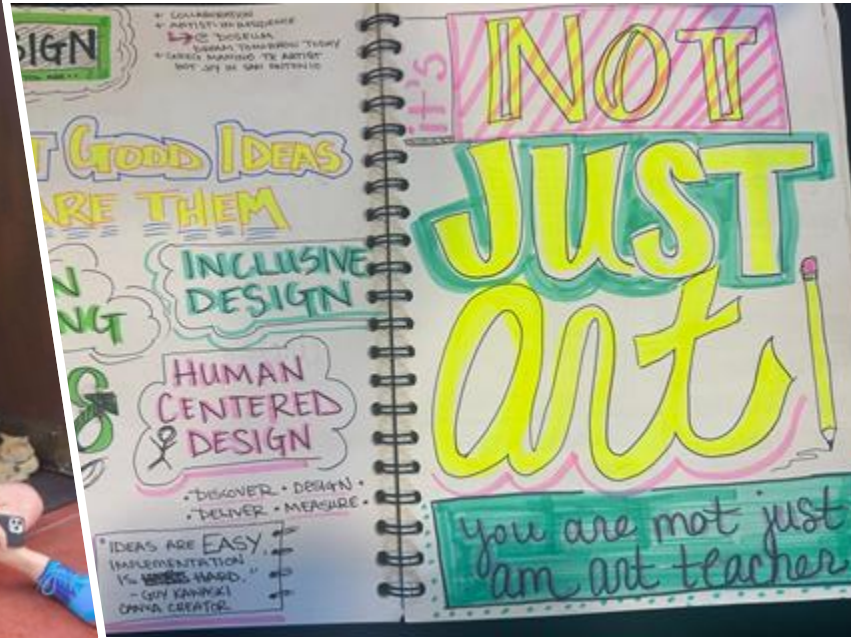 SIGN
+ COLLABORATION
+ ARTIST IN RESIDENCE
@ DOSEUM
DREAM TOMORROW TODAY
BOT JOY IN SAN ANTONIO
GOOD IDEAS
ARE THEM
INCLUSIVE
DESIGN
HUMAN
CENTERED
DESIGN
• DISCOVER • DESIGN •
• DELIVER • MEASURE •
"IDEAS ARE EASY.
IMPLEMENTATION
IS HARD."
- GUY KAWASKI
CANVA CREATOR
it's
NOT
JUST
art
you are not just
an art teacher